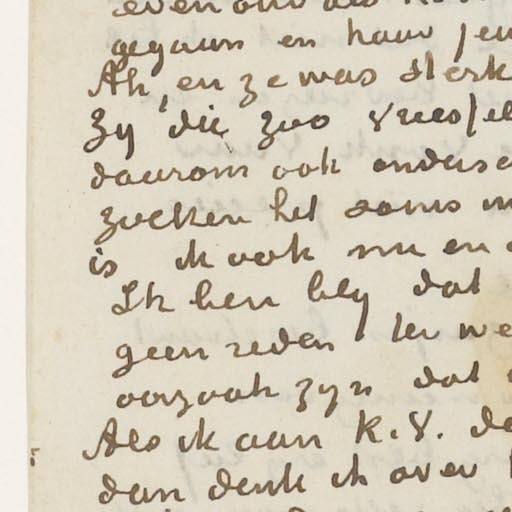 even oud als
gegaan en haar jeu
Ah, en ze was sterk
Zy die zoo vreesel
daarom ook anders
zoeken het soms
is ik ook nu en
Ik ben bly dat
geen reden ter we
oorzaak zyn dat
Als ik aan K.V. de
dan denk ik over